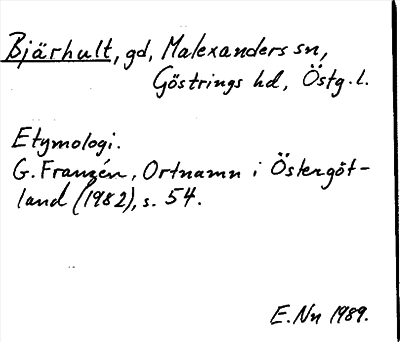 Bjärhult, gd, Malexanders sn,
Göstrings hd, Östg. l.
Etymologi.
G. Franzén, Ortnamn i Östergöt-
land (1982), s. 54.
E. Nn 1989.